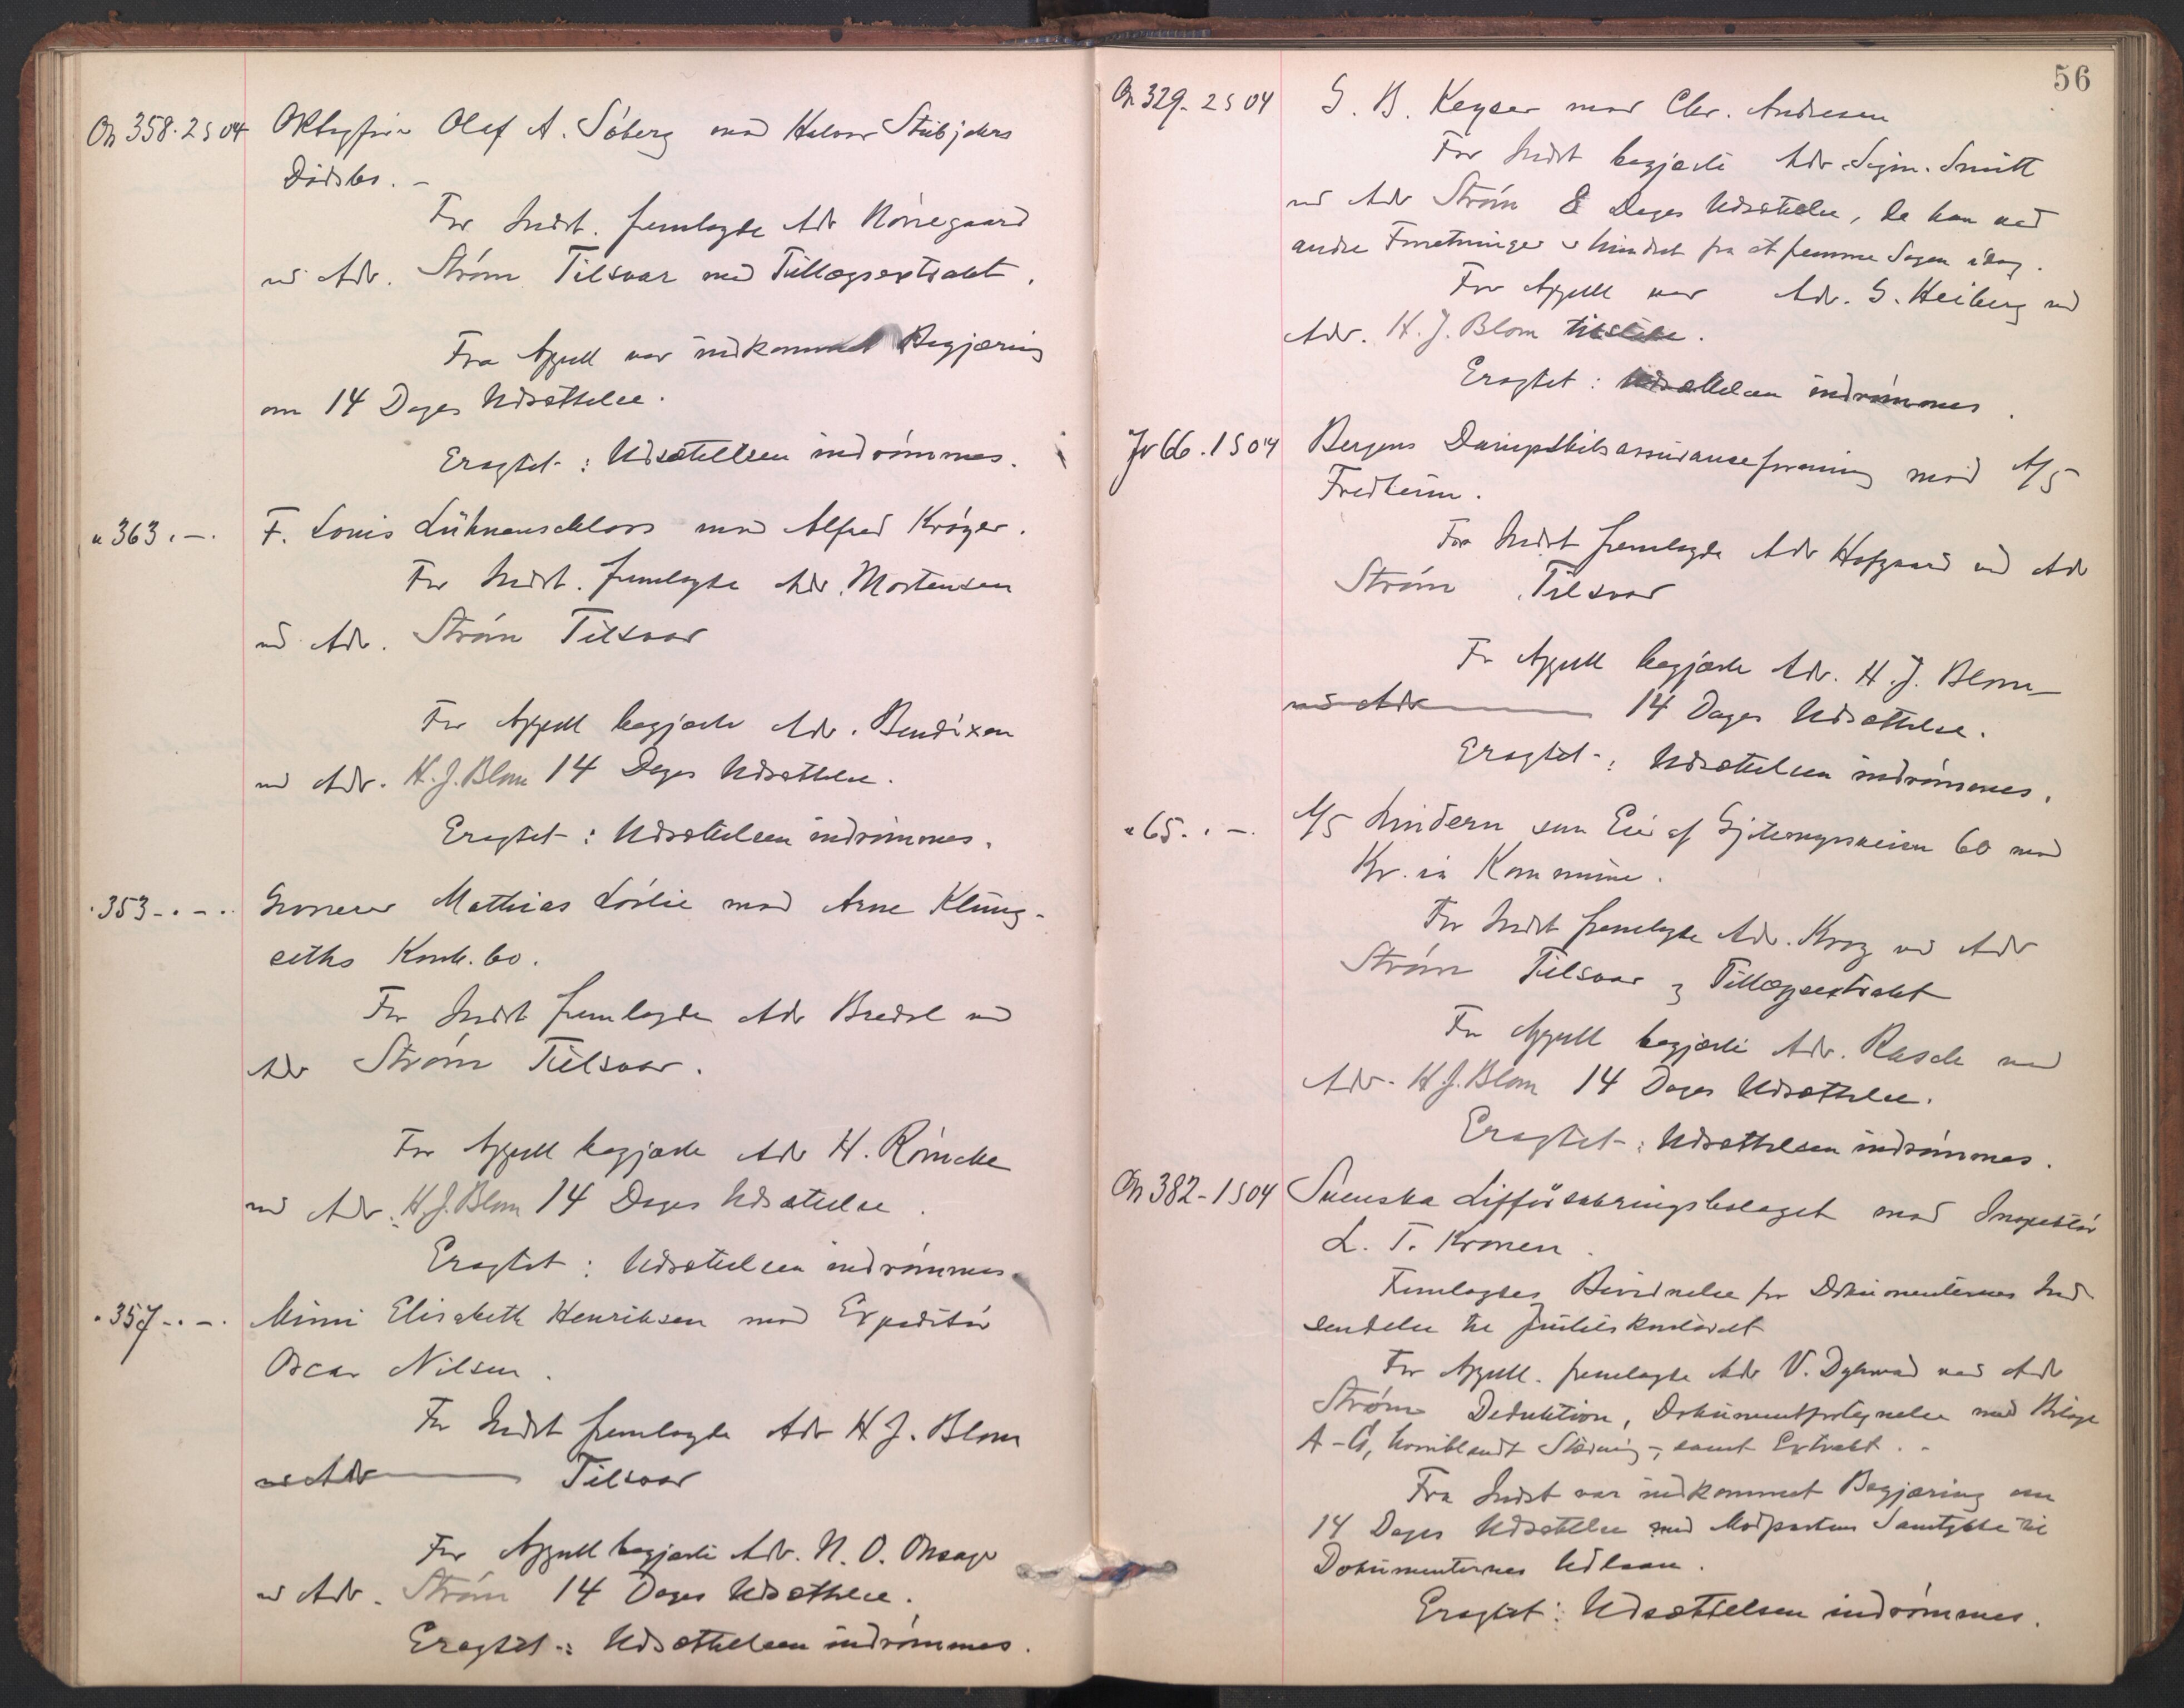 On 358. 2 S 04 Olaf A. Söberg mod Halvor Stubjders
Dödsbo. -
For Indst. fremlagde Adv Nörregaard
ved Adv. Ström Tilsvar med Tillægsextrakt.
Fra Appell var indkommet Begjæring
om 14 Dages Udsættelse.
Eragtet: Udsættelsen indrömmes.
" 363. -. F. Louis Lühnenschloss mod Alfred Kröger.
For Indst. fremlagde Adv. Mortensen
ved Adv. Ström Tilsvar
For Appell begjærte Adv. Bendixen
ved Adv. H. J. Blom 14 Dages Udsættelse.
Eragtet: Udsættelsen indrömmes.
" 353 -. -. Grosserer Mathias Lörlie mod Arne Klung-
seths Konk. bo.
For Indst fremlagde Adv Bredal ved
Adv Ström Tilsvar.
For Appell begjærte Adv H. Römcke
ved Adv. H. J. Blom 14 Dages Udsættelse.
Eragtet: Udsættelsen indrömmes.
" 357 -. -. Mimi Elisabeth Henriksen mod Expeditör
Oscar Nilsen.
For Indst fremlagde Adv H. J. Blom
ved Adv Tilsvar
For Appell begjærte Adv. N. O. Onsager
ved Adv. Ström 14 Dages Udsættelse.
Eragtet: Udsættelsen indrömmes.
56
On 329. 2 S 04 G. B. Keyser mod Chr. Andresen
For Indst begjærte Adv Sigm. Smitt
ved Adv Ström 8 Dages Udsættelse, da han ved
andre Forretninger er hindret fra at fremme Sagen idag.
For Appell var Adv. G. Heiberg ved
Adv. H. J. Blom tilstede.
Eragtet: Udsættelsen indrömmes.
Fr 66. 1 S 04 Bergens Dampskibsassuranceforening mod A/S
Fredheim.
For Indst fremlagde Adv Hofgaard ved Adv
Ström Tilsvar
For Appell begjærte Adv. H. J. Blom
ved Adv 14 Dages Udsættelse.
Eragtet: Udsættelsen indrömmes.
" 65. . -. A/S Lindern som Eier af Gjetemyrsveien 60 mod
Kr.ia Kommune.
For Indst fremlagde Adv. Krog ved Adv
Ström Tilsvar og Tillægsextrakt
For Appell begjærte Adv. Rasch ved
Adv. H. J. Blom 14 Dages Udsættelse.
Eragtet: Udsættelsen indrömmes.
On 382 - 1 S 04 Svenska Lifförsäkringsbolaget mod Inspektör
L. T. Kronen.
Fremlagdes Bevidnelse for Dokumenternes Ind-
sendelse til Justitskontoret
For Appell. fremlagde Adv V. Dybwad ved Adv
Ström Deduktion, Dokumentfortegnelse med Bilage
A-G, hvoriblandt Stævning, samt Extrakt. -
Fra Indst var indkommet Begjæring om
14 Dages Udsættelse med Modpartens Samtykke til
Dokumenternes Udlaan.
Eragtet: Udsættelsen indrömmes.